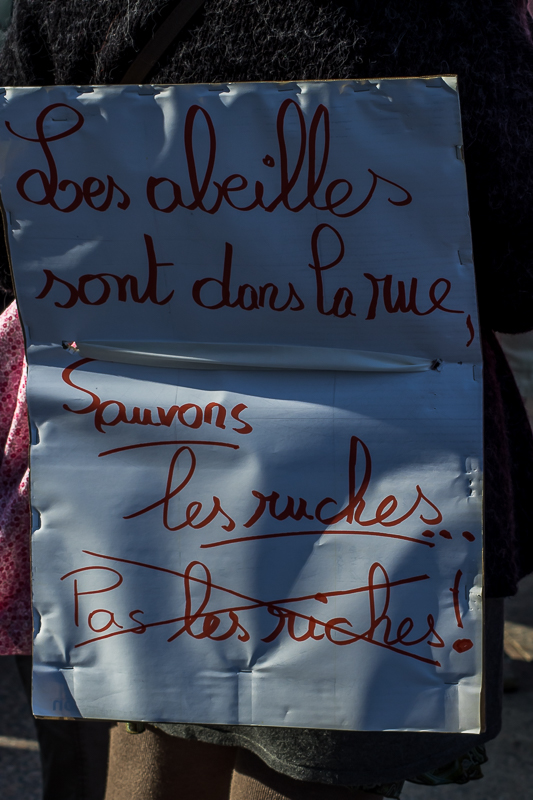 Les abeilles
sont dans la rue,
Sauvons
les ruches...
Pas les riches!